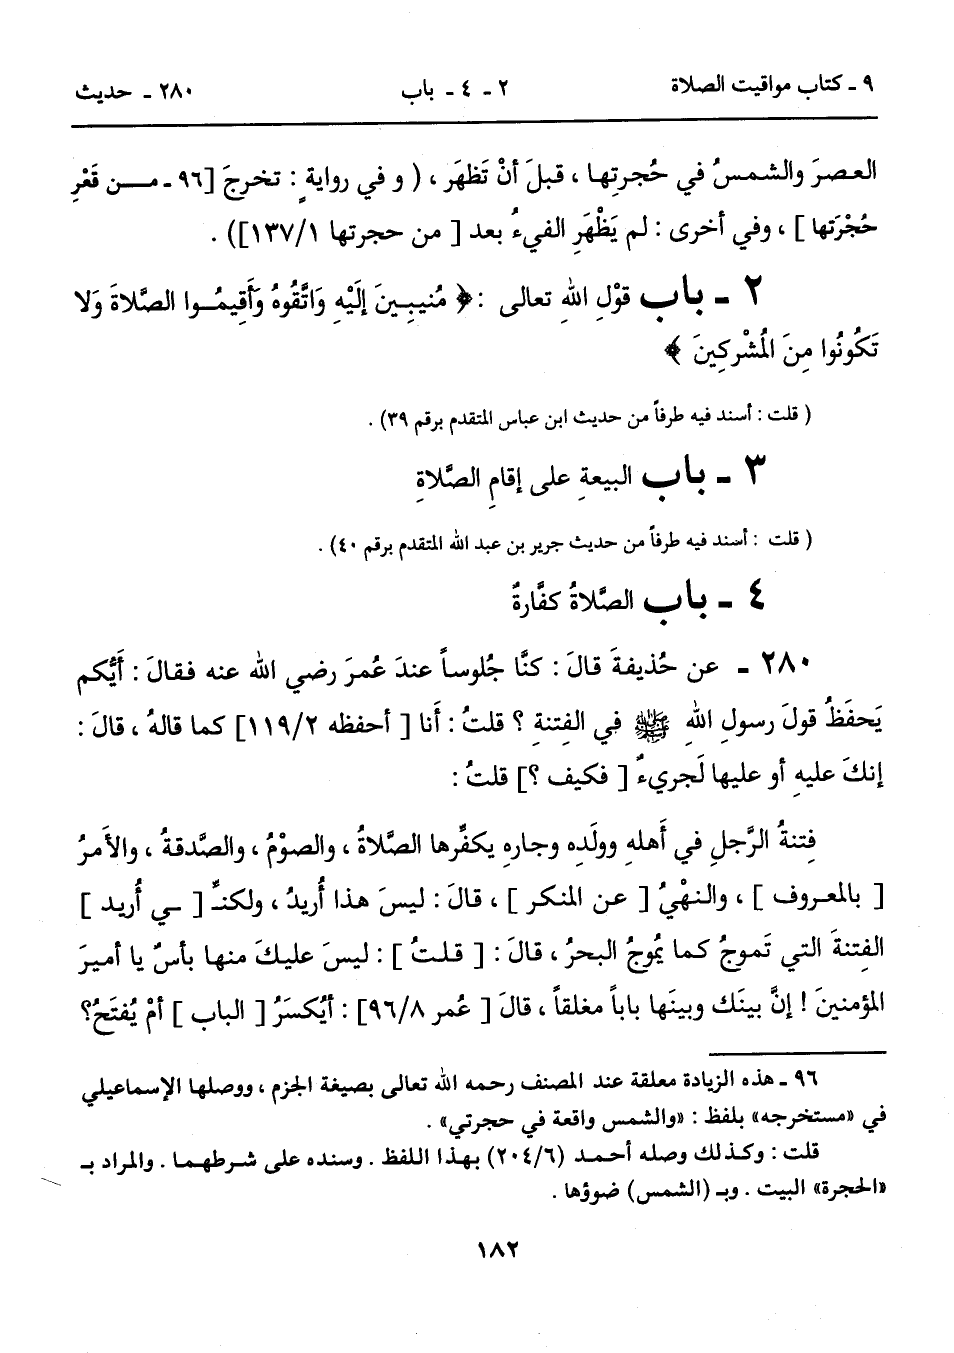 ٩ ـ كتاب مواقيت الصلاة ٢ ـ ٤ ـ باب ٢٨٠ ـ حديث
العصرَ والشمسُ في حُجرتِها ، قبلَ أنْ تَظهَر ، ( و في روايةٍ : تخرجَ [٩٦ ـ مـن قَعْرِ
حُجْرَتها ] ، وفي أخرى : لم يَظْهَرِ الفيءُ بعد [ من حجرتها ١/١٣٧]) .
٢ ـ باب قوْلِ اللهِ تعالى :﴿ مُنيبينَ إلَيْهِ وَاتَّقُوهُ وَأَقِيمُـوا الصَّلاةَ وَلا
تَكُونُوا مِنَ المُشْركِينَ ﴾
( قلت : أسند فيه طرفاً من حديث ابن عباس المتقدم برقم ٣٩) .
٣ ـ باب البيعةِ على إقامِ الصَّلاةِ
( قلت : أسند فيه طرفاً من حديث جرير بن عبد الله المتقدم برقم ٤٠) .
٤ ـ باب الصَّلاةُ كفَّارةٌ
٢٨٠ ـ عن حُذيفةَ قالَ : كنَّا جُلوساً عندَ عُمرَ رضي الله عنه فقالَ : أَيُّكم
يَحفَظُ قولَ رسولِ اللهِ ﷺ في الفتنةِ ؟ قلتُ : أَنا [ أحفظه ٢/١١٩] كما قالهُ ، قالَ :
إنكَ عليهِ أو عليها لَجريءٌ [ فكيف ؟] قلتُ :
فِتنةُ الرَّجلِ في أَهلهِ وولَدِه وجارِهِ يكفِّرها الصَّلاةُ ، والصوْمُ ، والصَّدقةُ ، والأَمرُ
[ بالمعروف ] ، والنهْيُ [ عن المنكر ] ، قالَ : ليسَ هذا أُريدُ ، ولكنـّ [ ـي أُريد ]
الفتنةَ التي تَموجُ كما يمُوجُ البحرُ ، قالَ : [ قلتُ ] : ليسَ عليكَ منها بأسٌ يا أميرَ
المؤمنينَ ! إنَّ بينَك وبينَها باباً مغلقاً ، قالَ [ عُمر ٨/٩٦] : أيُكسَرُ [ الباب ] أمْ يُفتَحُ؟
٩٦ ـ هذه الزيادة معلقة عند المصنف رحمه الله تعالى بصيغة الجزم ، ووصلها الإسماعيلي
في «مستخرجه» بلفظ : «والشمس واقعة في حجرتي» .
قلت : وكذلك وصله أحمد (٦/٢٠٤) بهذا اللفظ . وسنده على شرطهما . والمراد بـ
«الحجرة» البيت . وبـ (الشمس) ضوؤها .
١٨٢